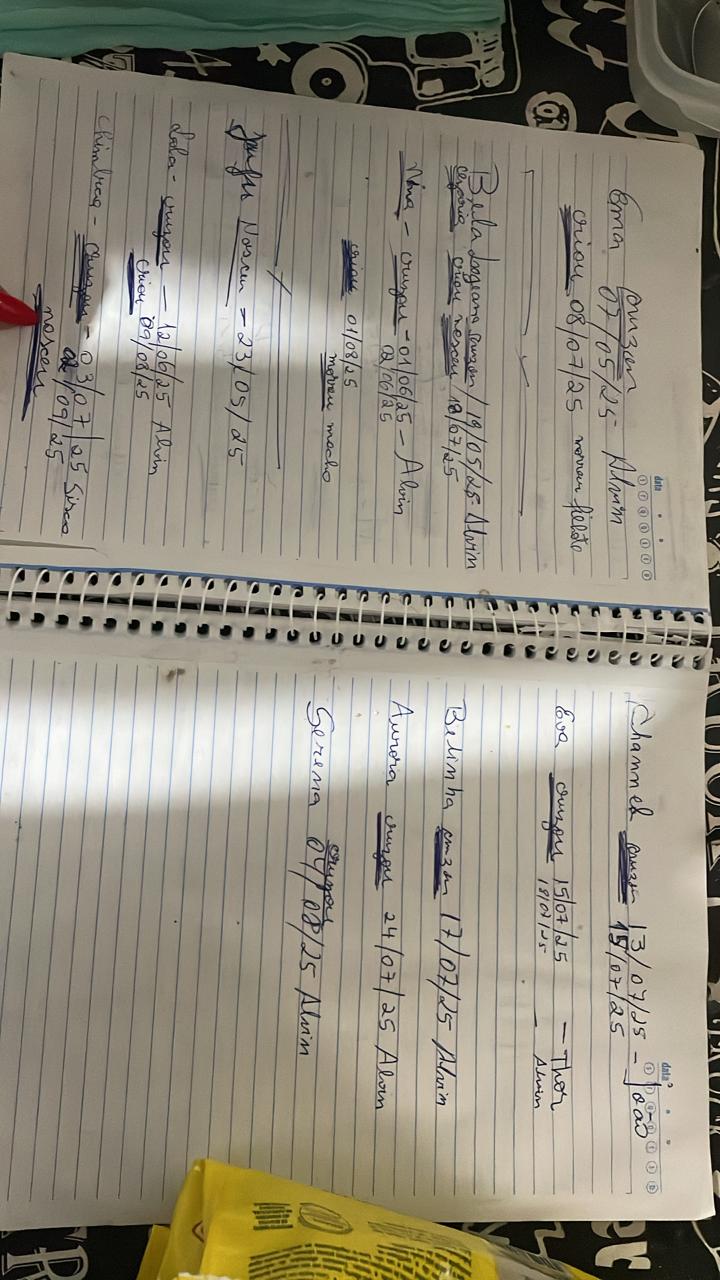 data
Ema cruzou
07/05/25- Alvim
criou 08/07/25 morreu filhote
Bela Logeana cruzou / 19/05/25- Alvim
cesaria criou nasceu 18/07/25
Nina - cruzou - 01/06/25 - Alvin
02/06/25
criou 01/08/25
morreu macho
Nasceu - 23/05/25
Lola - cruzou - 12/06/25 Alvin
criou 09/08/25
Chimbica - cruzou - 03/07/25 Sisco
02/09/25
nasceu
data
Channel cruzou 13/07/25 - João
15/07/25
Eva cruzou 15/07/25 - Thor
18/07/25 - Alvim
Belinha cruzou 17/07/25 Alvim
Aurora cruzou 24/07/25 Alvin
cruzou
Serena 04/08/25 Alvim